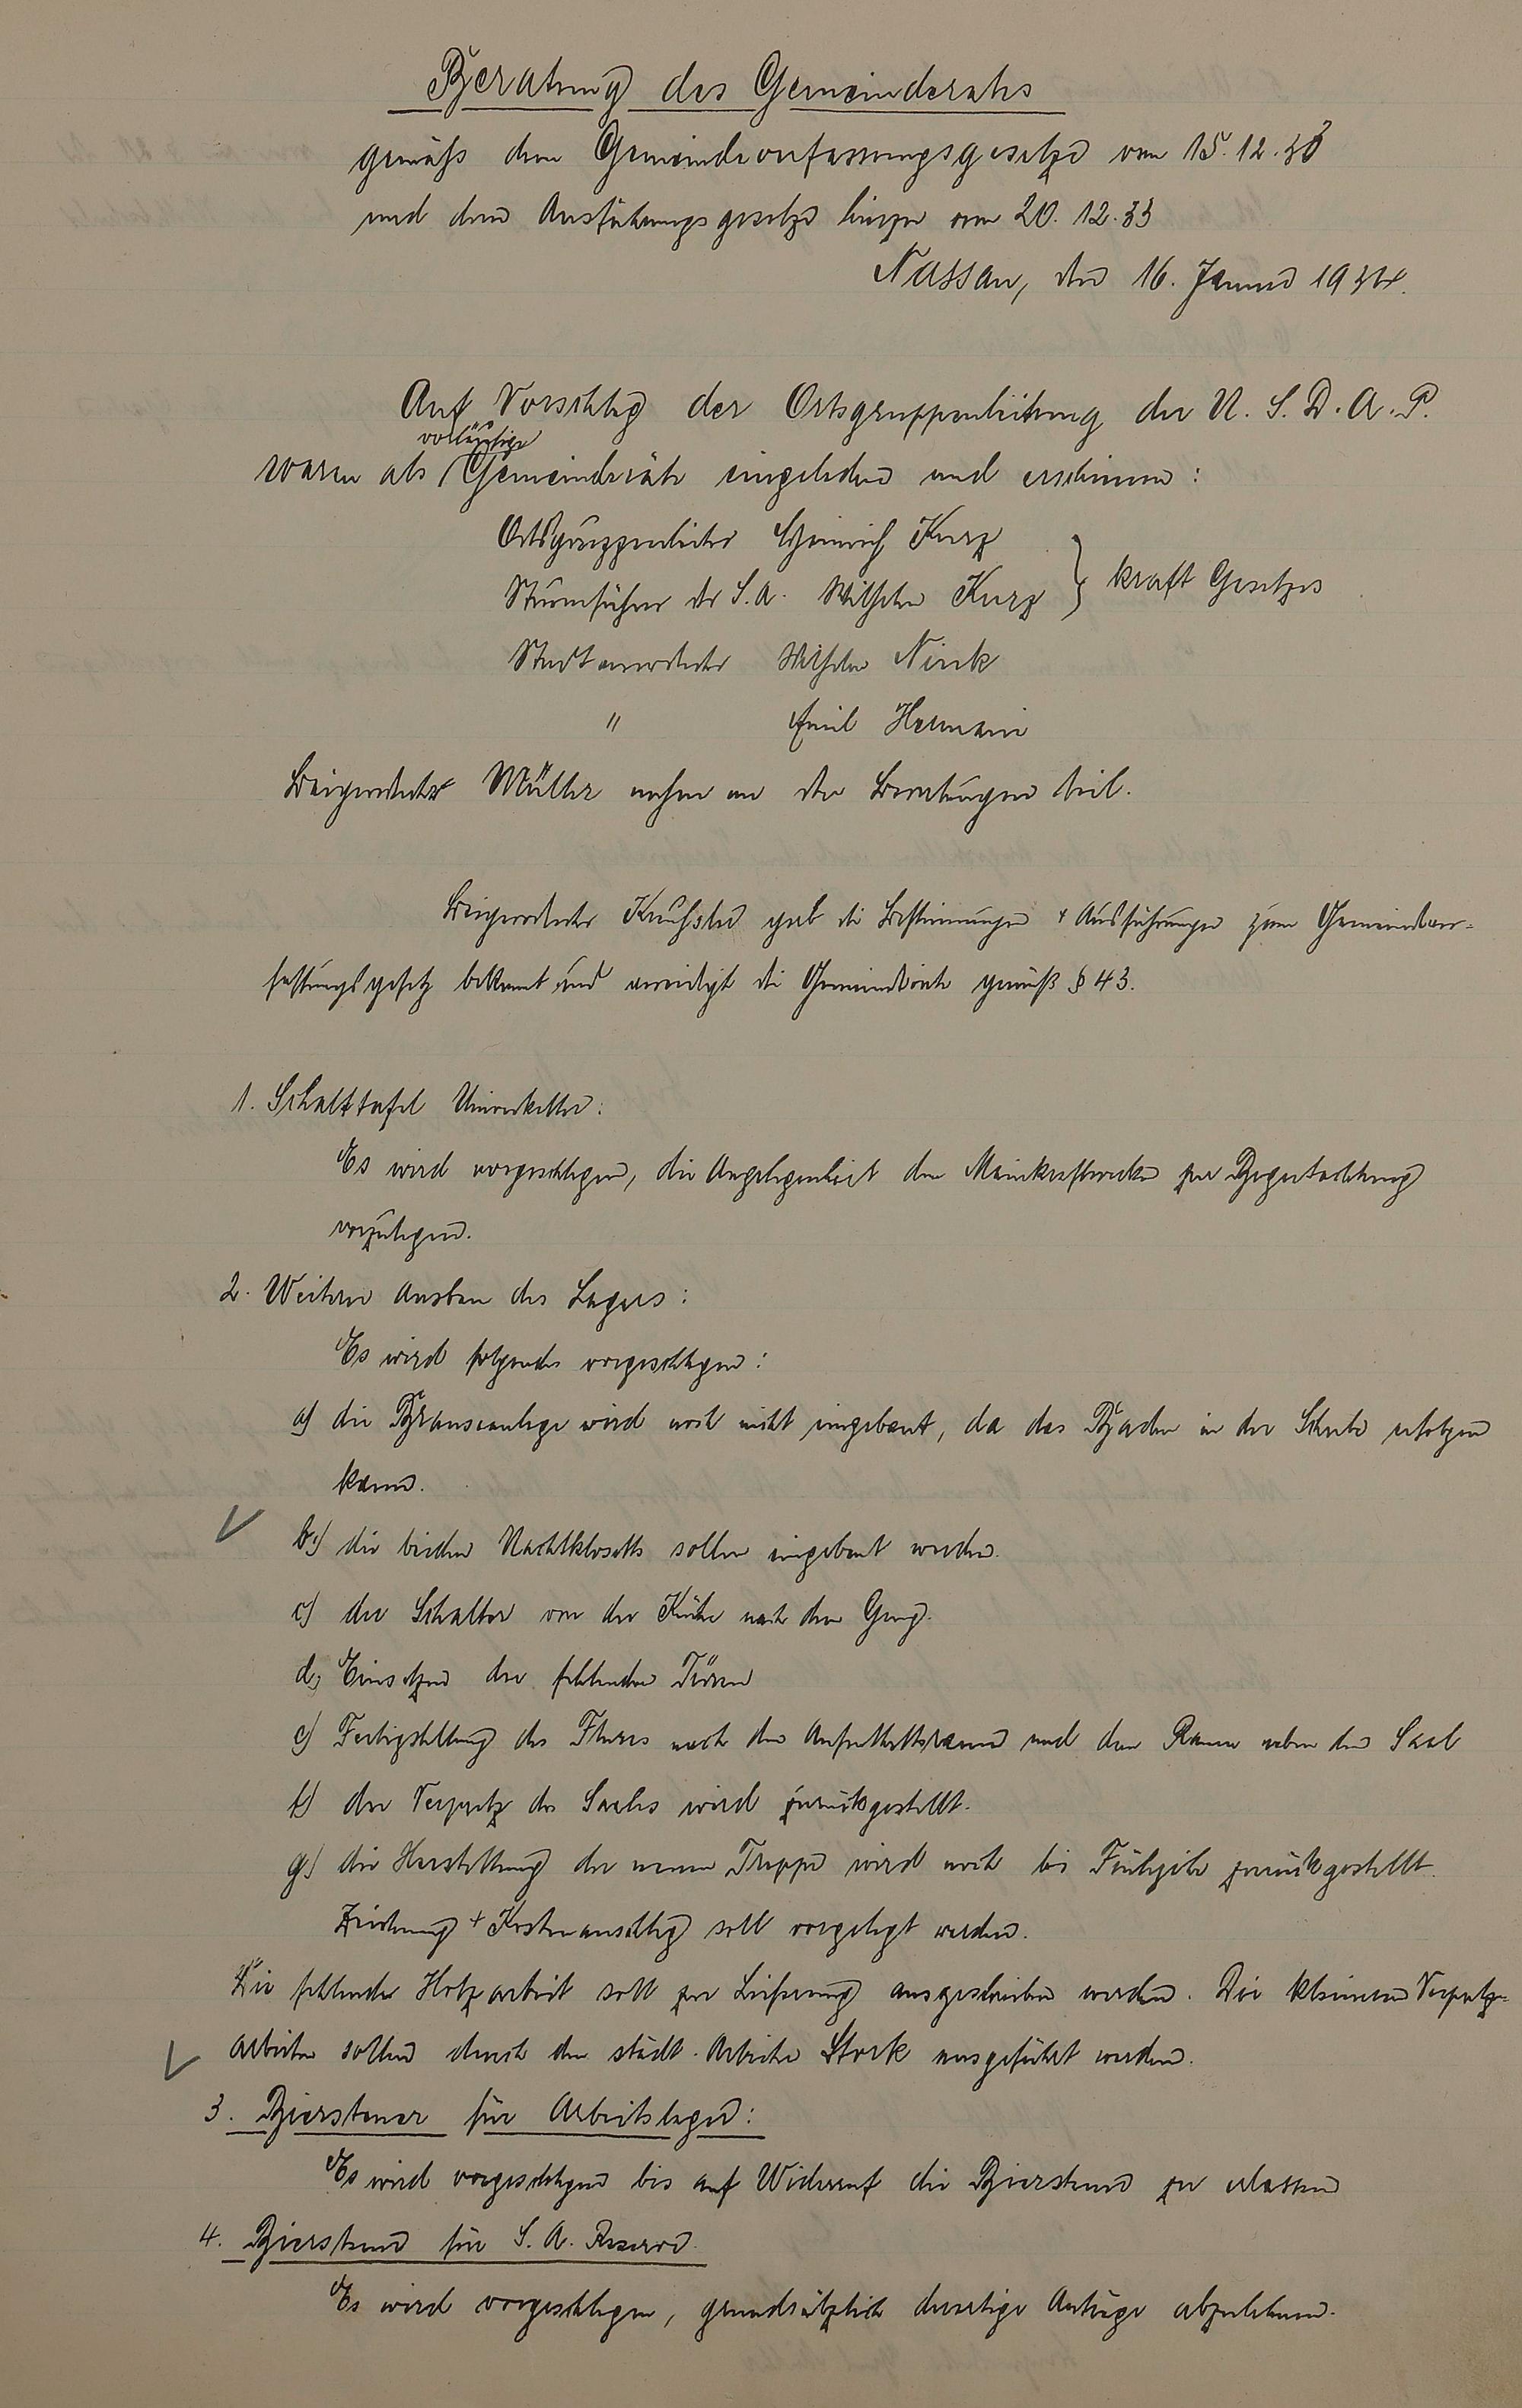 Beratung des Gemeinderates
gemäß dem Gemeindeverfassungsgesetze vom 15.12.33
und dem Ausführungsgesetze hierzu vom 20.12.33
Nassau, den 16. Januar 1934.
Auf Vorschlag der Ortsgruppenleitung der N.S.D.A.P.
vorläufige
waren als Gemeinderäte eingeladen und erschienen:
Ortsgruppenleiter Heinrich Kurz
Sturmführer der S.A. Wilhelm Kurz } kraft Gesetzes
Stadtverordneter Wilhelm Nink
" Emil Hermani
Beigeordneter Müller nahm an den Beratungen teil.
Beigeordneter gab die Bestimmungen + Ausführungen zum Gemeindever-
fassungsgesetz bekannt und vereidigt die Gemeinderäte gemäß § 43.
1. Schalttafel:
Es wird vorgeschlagen, die Angelegenheit den Mainkraftwerken zur Begutachtung
vorzulegen.
2. Weiterer Ausbau des Lagers:
Es wird folgendes vorgeschlagen:
a) die Brauseanlage wird noch nicht eingebaut, da das Baden in der Schule erfolgen
kann.
b) die beiden Nachtklosetts sollen eingebaut werden.
c) der Schalter von der Küche nach dem Gang.
d) Einsetzen der fehlenden Türen
e) Fertigstellung des Flures nach dem Aufenthaltsraum und dem Raume neben dem Saal
f) der Verputz des Saales wird zurückgestellt.
g) die Herstellung der neuen Treppe wird noch bis Frühjahr zurückgestellt.
Zeichnung + Kostenanschlag soll vorgelegt werden.
Die fehlende Holzarbeit soll zur Lieferung ausgeschrieben werden. Die kleineren Verputz-
arbeiten sollen durch den städt. Arbeiter Stork ausgeführt werden.
3. Biersteuer für Arbeitslager:
Es wird vorgeschlagen bis auf Widerruf die Biersteuer zu erlassen
4. Biersteuer für S.A. Reserve.
Es wird vorgeschlagen, grundsätzlich derartige Anträge abzulehnen.